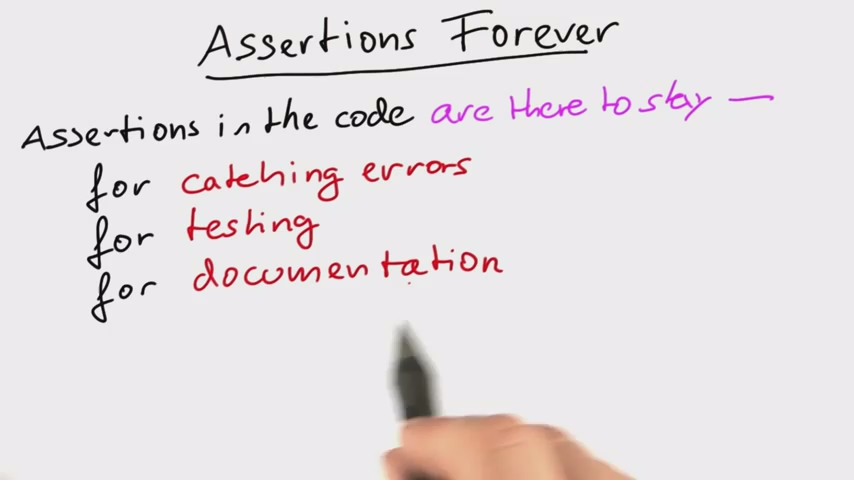 Assertions Forever
Assertions in the code are there to stay —
for catching errors
for testing
for documentation